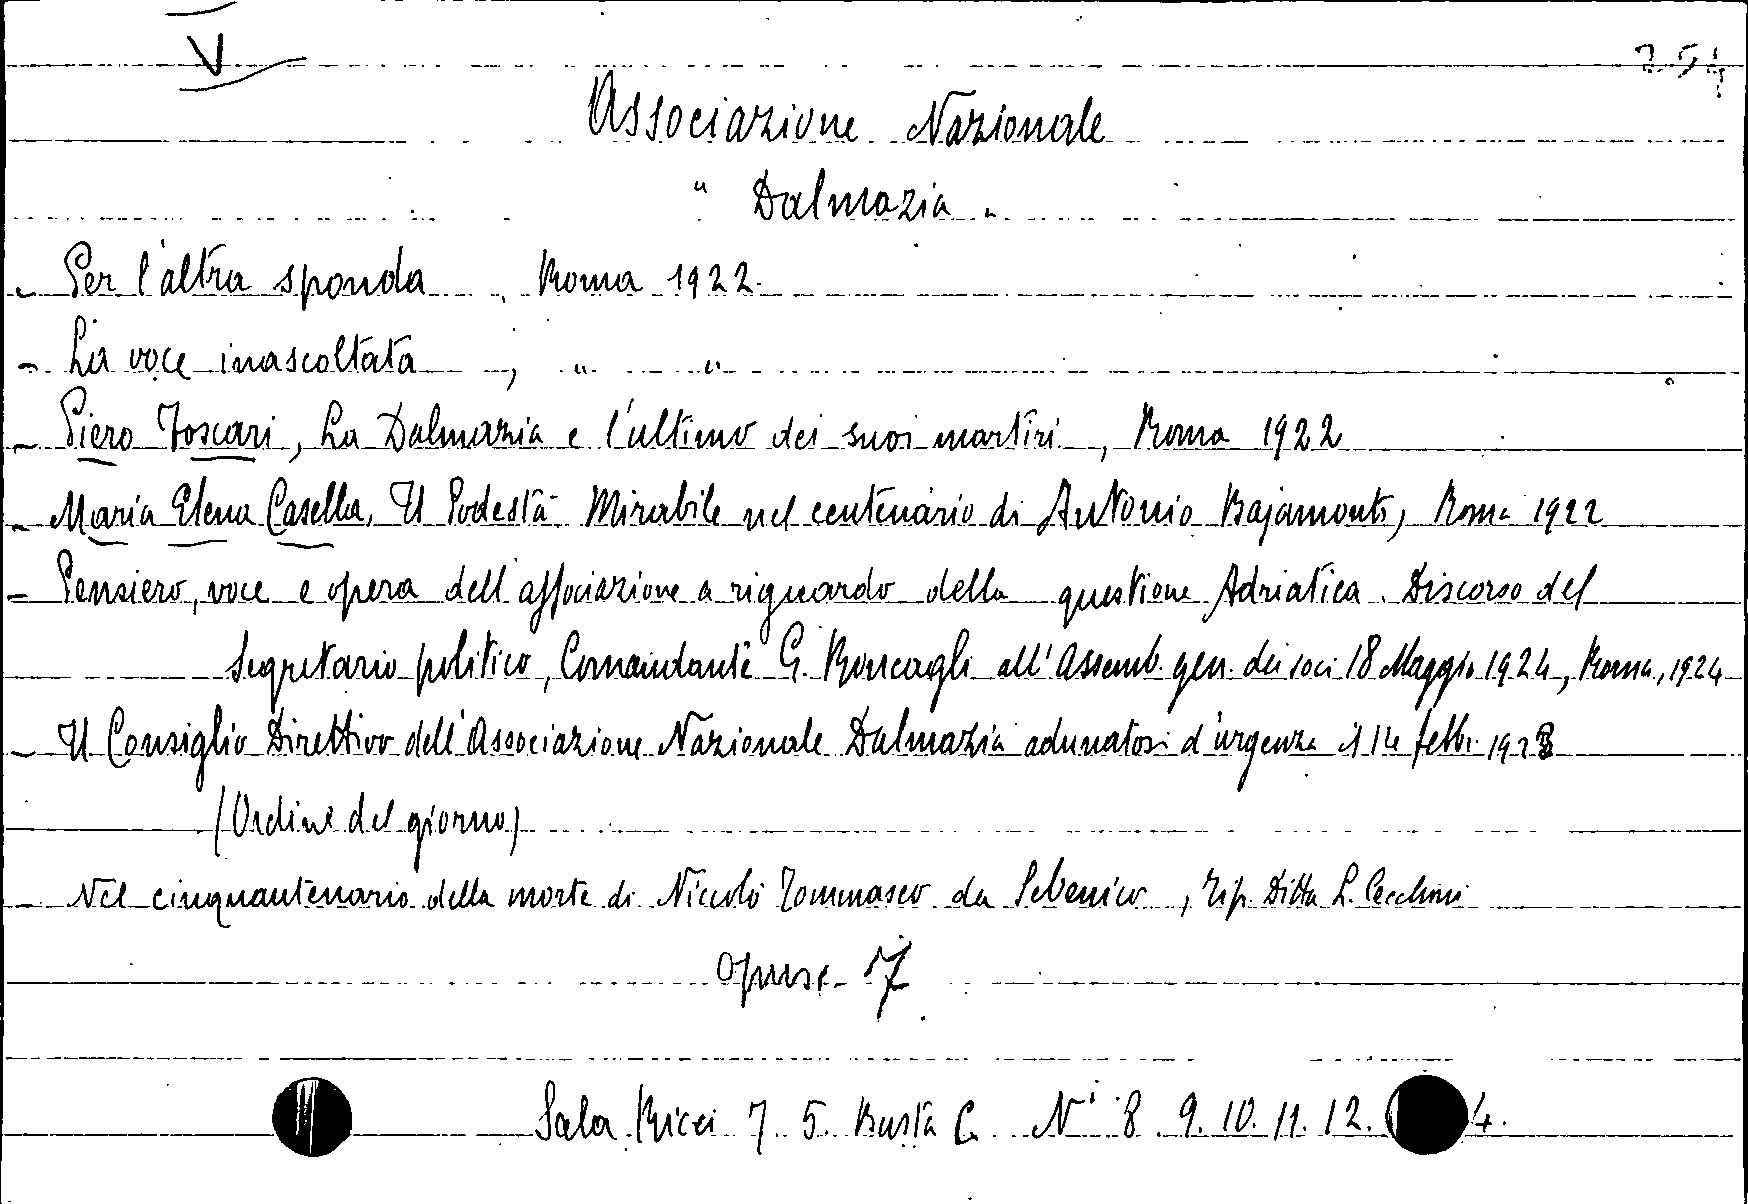 V
254
Associazione Nazionale
" Dalmazia "
- Per l'altra sponda, Roma 1922.
- La voce inascoltata, " "
- Piero Foscari, La Dalmazia e l'ultimo dei suoi martiri, Roma 1922
- Maria Elena Casella, Il Podestà Mirabile nel centenario di Antonio Bajamonti, Roma 1922
- Pensiero, voce e opera dell'associazione a riguardo della questione Adriatica. Discorso del
Segretario politico, Comandante G. Roncagli all'Assemb. gen. dei soci 18 Maggio 1924, Roma, 1924
- Il Consiglio Direttivo dell'Associazione Nazionale Dalmazia adunatosi d'urgenza il 14 febbr. 1923
(Ordine del giorno)
- Nel cinquantenario della morte di Niccolò Tommaseo da Sebenico, Tip. Ditta L. Cecchini
Opusc. 7
Sala Ricci 7. 5. Busta C. Ni 8. 9. 10. 11. 12. 4.